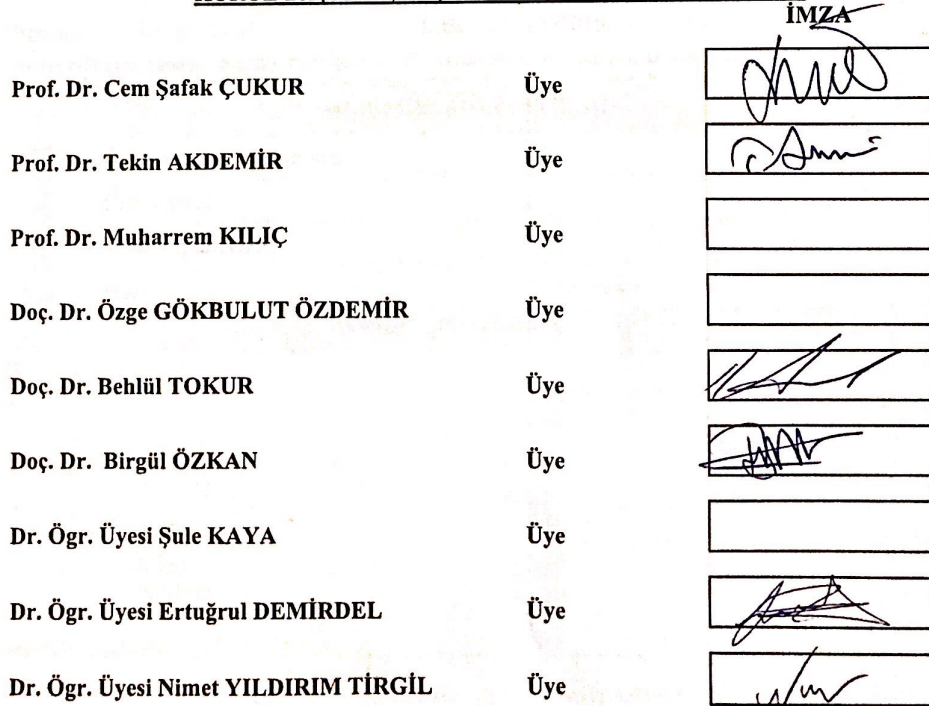 İMZA
Prof. Dr. Cem Şafak ÇUKUR Üye
Prof. Dr. Tekin AKDEMİR Üye
Prof. Dr. Muharrem KILIÇ Üye
Doç. Dr. Özge GÖKBULUT ÖZDEMİR Üye
Doç. Dr. Behlül TOKUR Üye
Doç. Dr. Birgül ÖZKAN Üye
Dr. Ögr. Üyesi Şule KAYA Üye
Dr. Ögr. Üyesi Ertuğrul DEMİRDEL Üye
Dr. Ögr. Üyesi Nimet YILDIRIM TİRGİL Üye